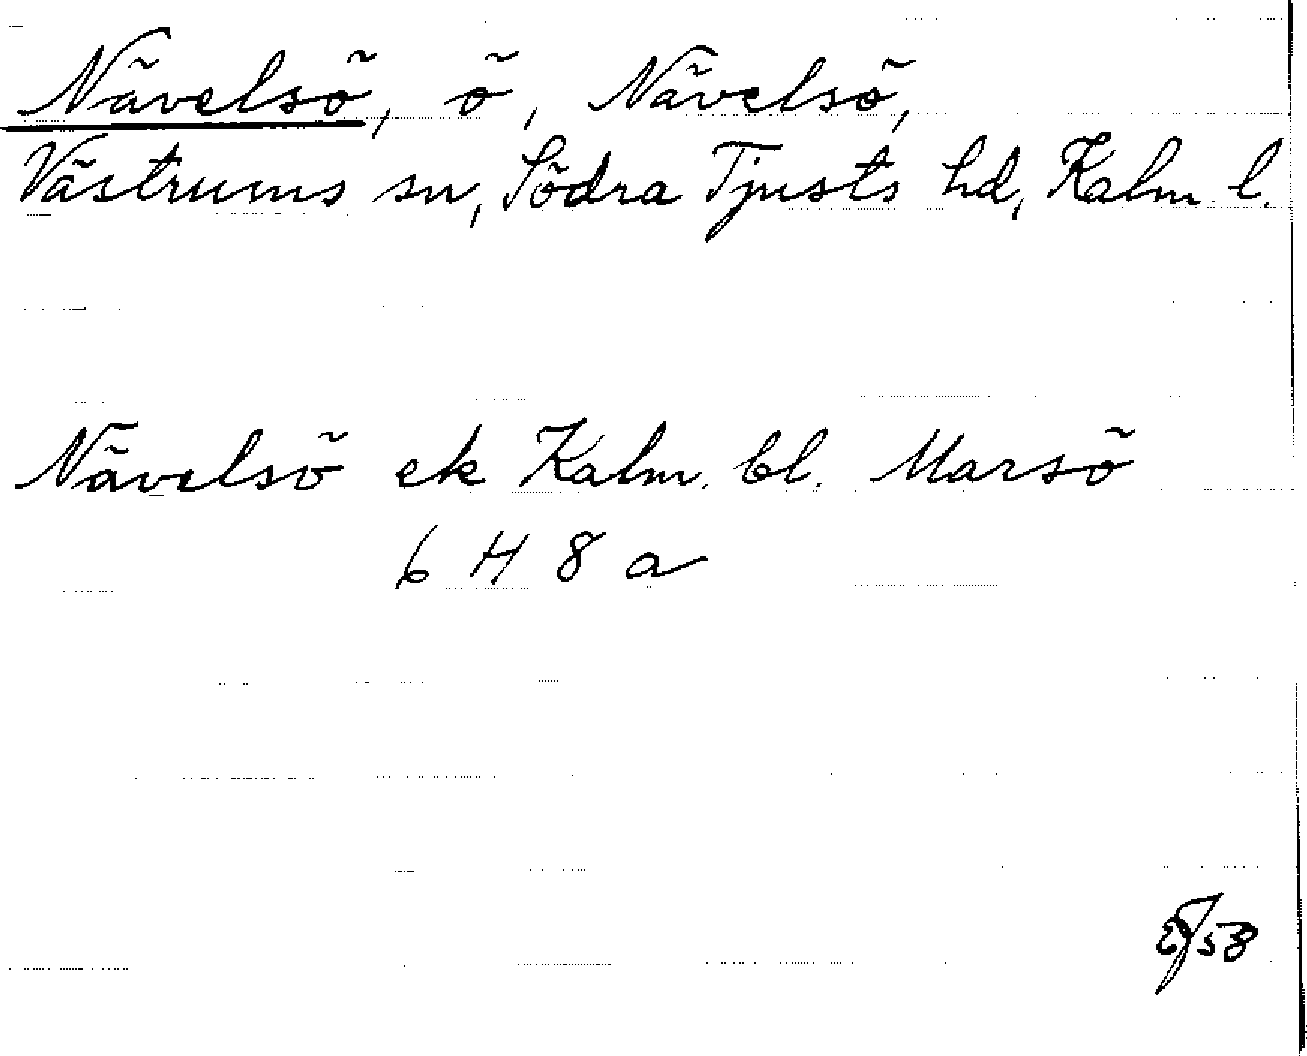 Nävelsö, ö, Nävelsö,
Västrums sn, Södra Tjusts hd, Kalm l.
Nävelsö ek Kalm. bl. Marsö
6 H 8 a
58